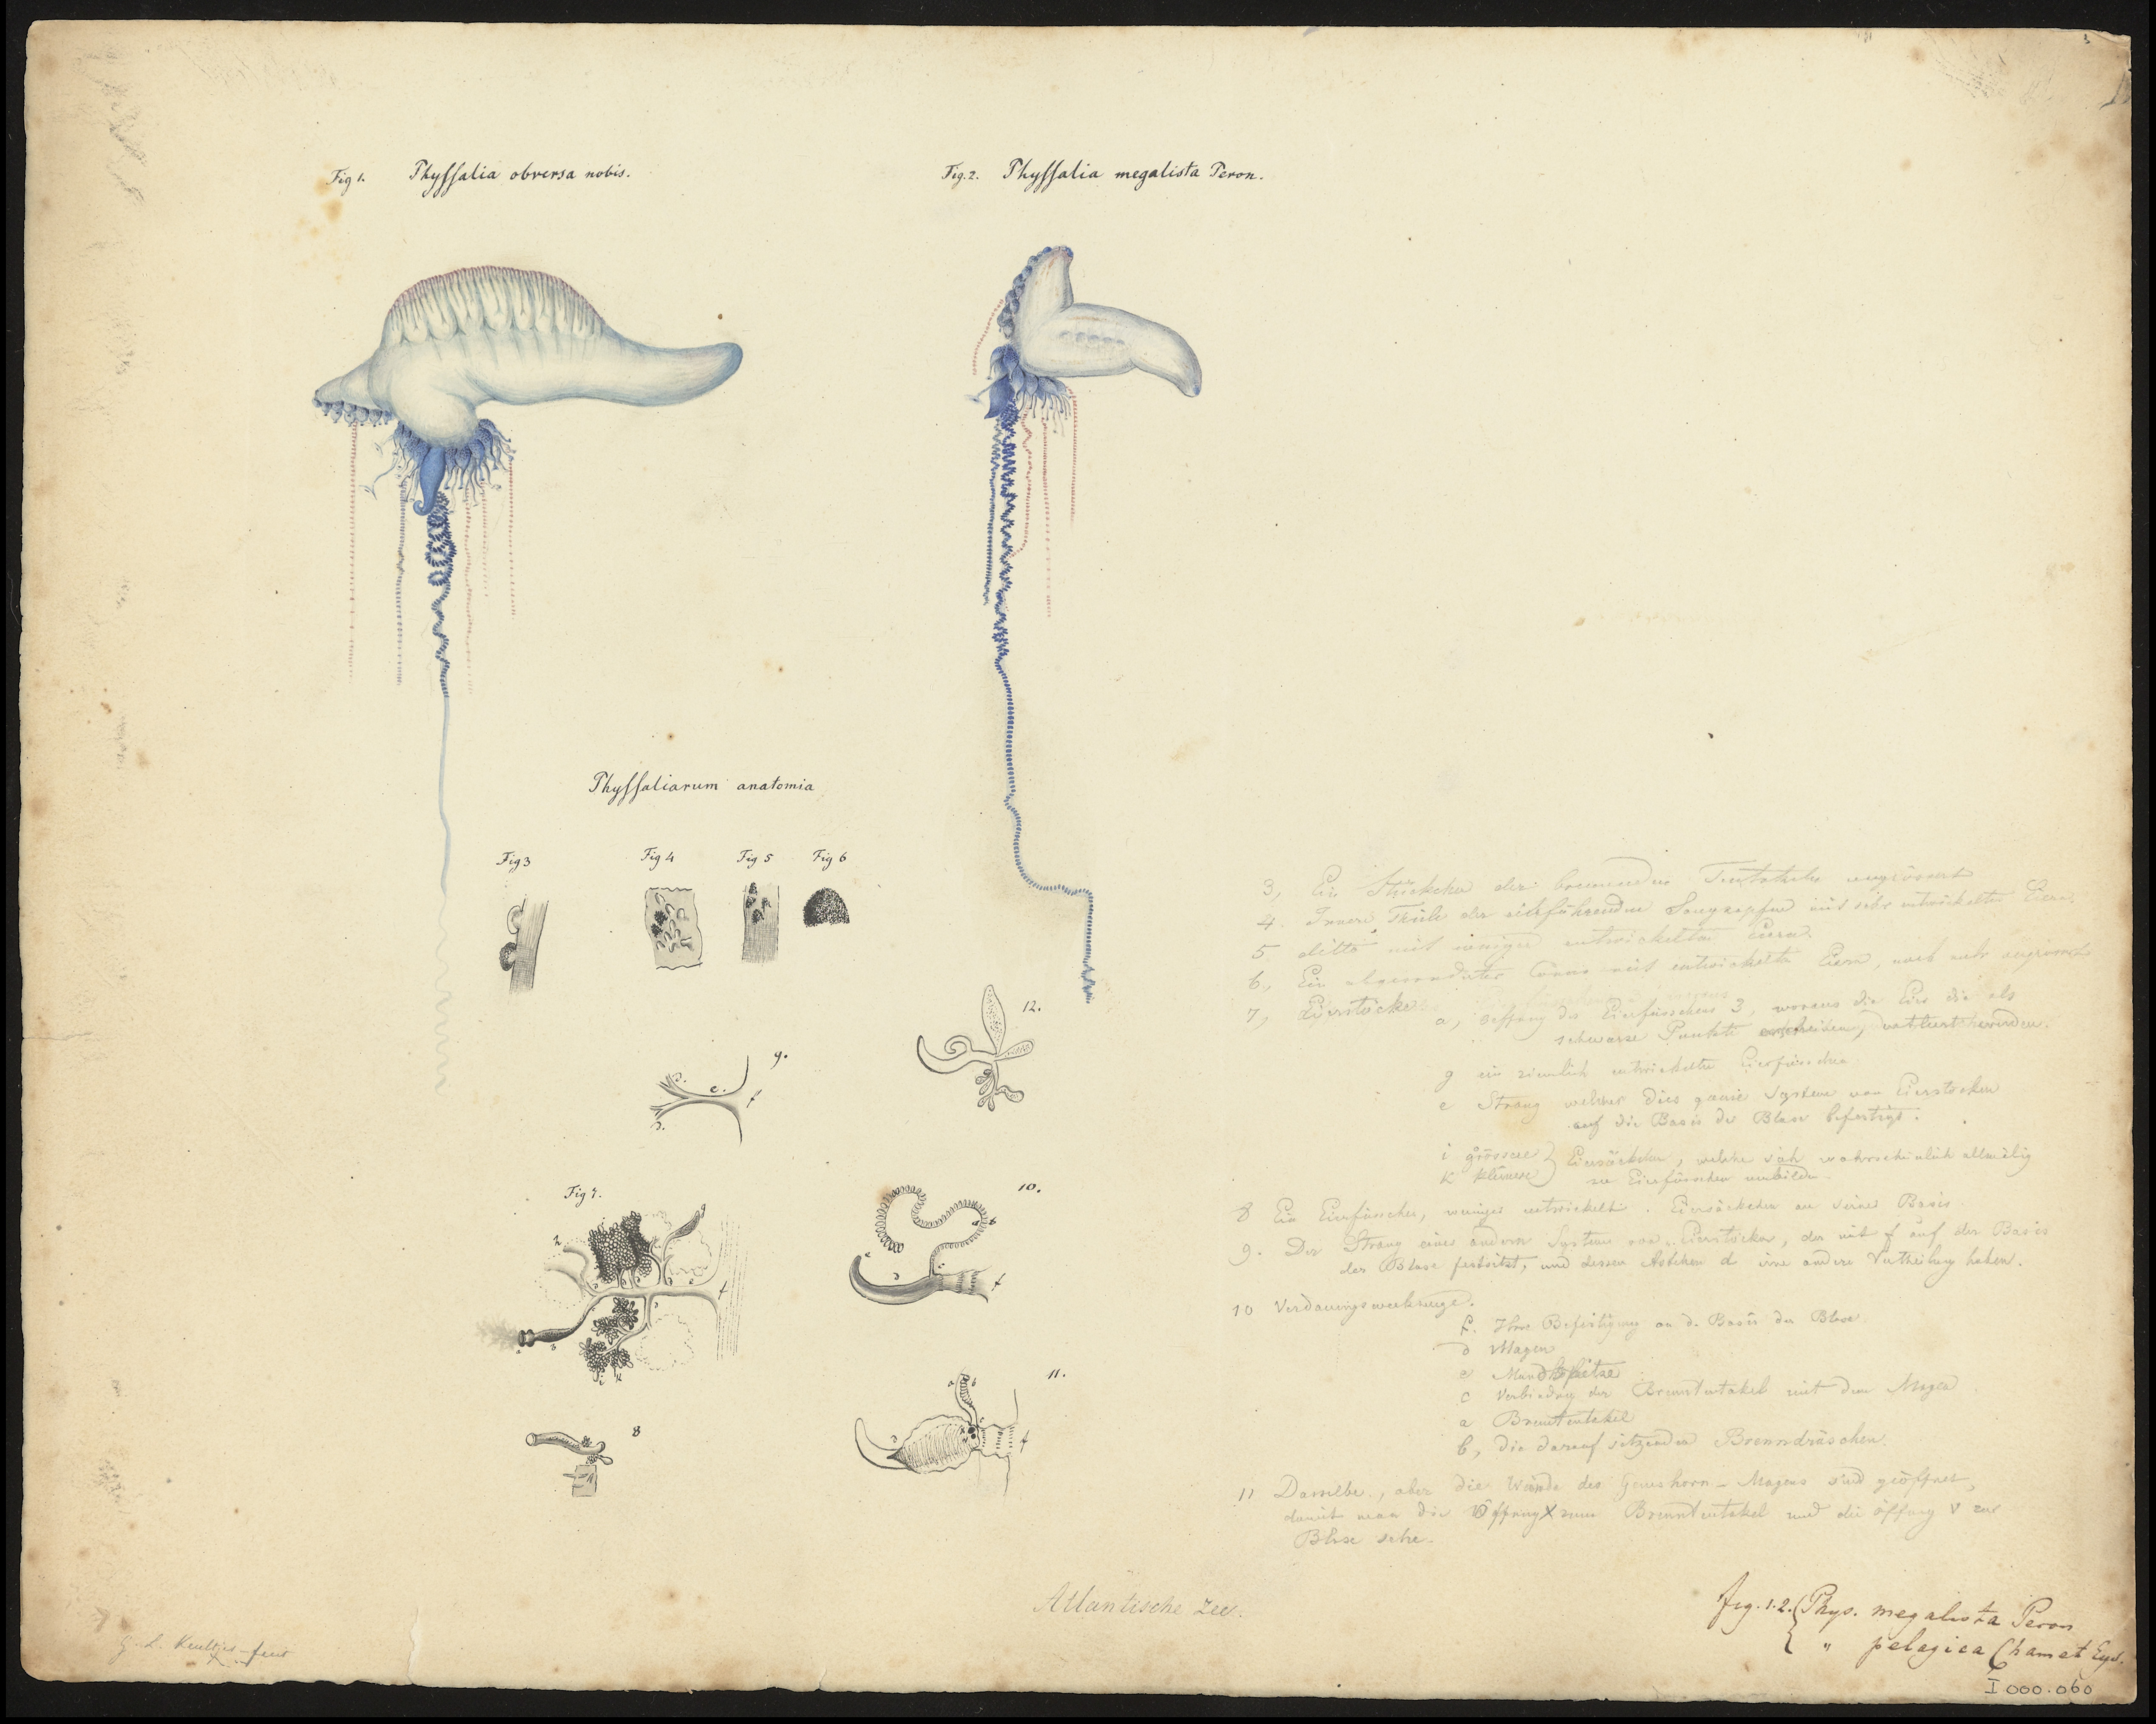 Fig 1. Physsalia obversa nobis.
Fig. 2. Physsalia megalista Peron.
Physsaliarum anatomia
Fig 3
Fig 4
Fig 5
Fig 6
12.
9.
c.
f
Fig 7.
g
h
f
a
b
i k
10.
a b
e
c
f
8
11.
a b
f
3, Ein Stückchen der brennenden Tentakeln vergrössert
4. Innere Theile der eierführenden Saugnapfen mit sehr entwickelten Eiern.
5 ditto mit weniger entwickelten Eiern.
6., Ein Conus mit entwickelten Eiern, noch mehr vergrössert
7, Eierstöcke a, Oeffnung des Eierfüsschens 3, woraus die Eier die als
schwarze Punkte erscheinen, werden.
g ein ziemlich entwickeltes Eierfüsschen
e Strang welcher dies ganze System von Eierstöcken
auf die Basis der Blase befestigt.
i grössere } Eiersäckchen, welche sich wahrscheinlich allmälig
k kleinere } zu Eierfüsschen umbilden.
8 Ein Eierfüsschen, weniger entwickelt. Eiersäckchen an seiner Basis
9. Der Strang eines andern Systems von Eierstöcken, der mit f auf der Basis
der Blase festsitzt, und dessen Ästchen d eine andere Vertheilung haben.
10 Verdauungswerkzeuge.
f. Ihre Befestigung an d. Basis der Blase
d Magen
e Mundspitze
c Verbindung der Brenntentakel mit dem Magen
a Brenntentakel
b, die darauf sitzenden Brenndrüschen.
11 Dasselbe, aber die Wände des Magens sind geöffnet,
damit man die Öffnung X zum Brenntentakel und die öffnung V zur
Blase sehe.
Atlantische Zee.
fig. 1.2. { Phys. megalista Peron
{ " pelagica Cham et Eys.
I 000.060